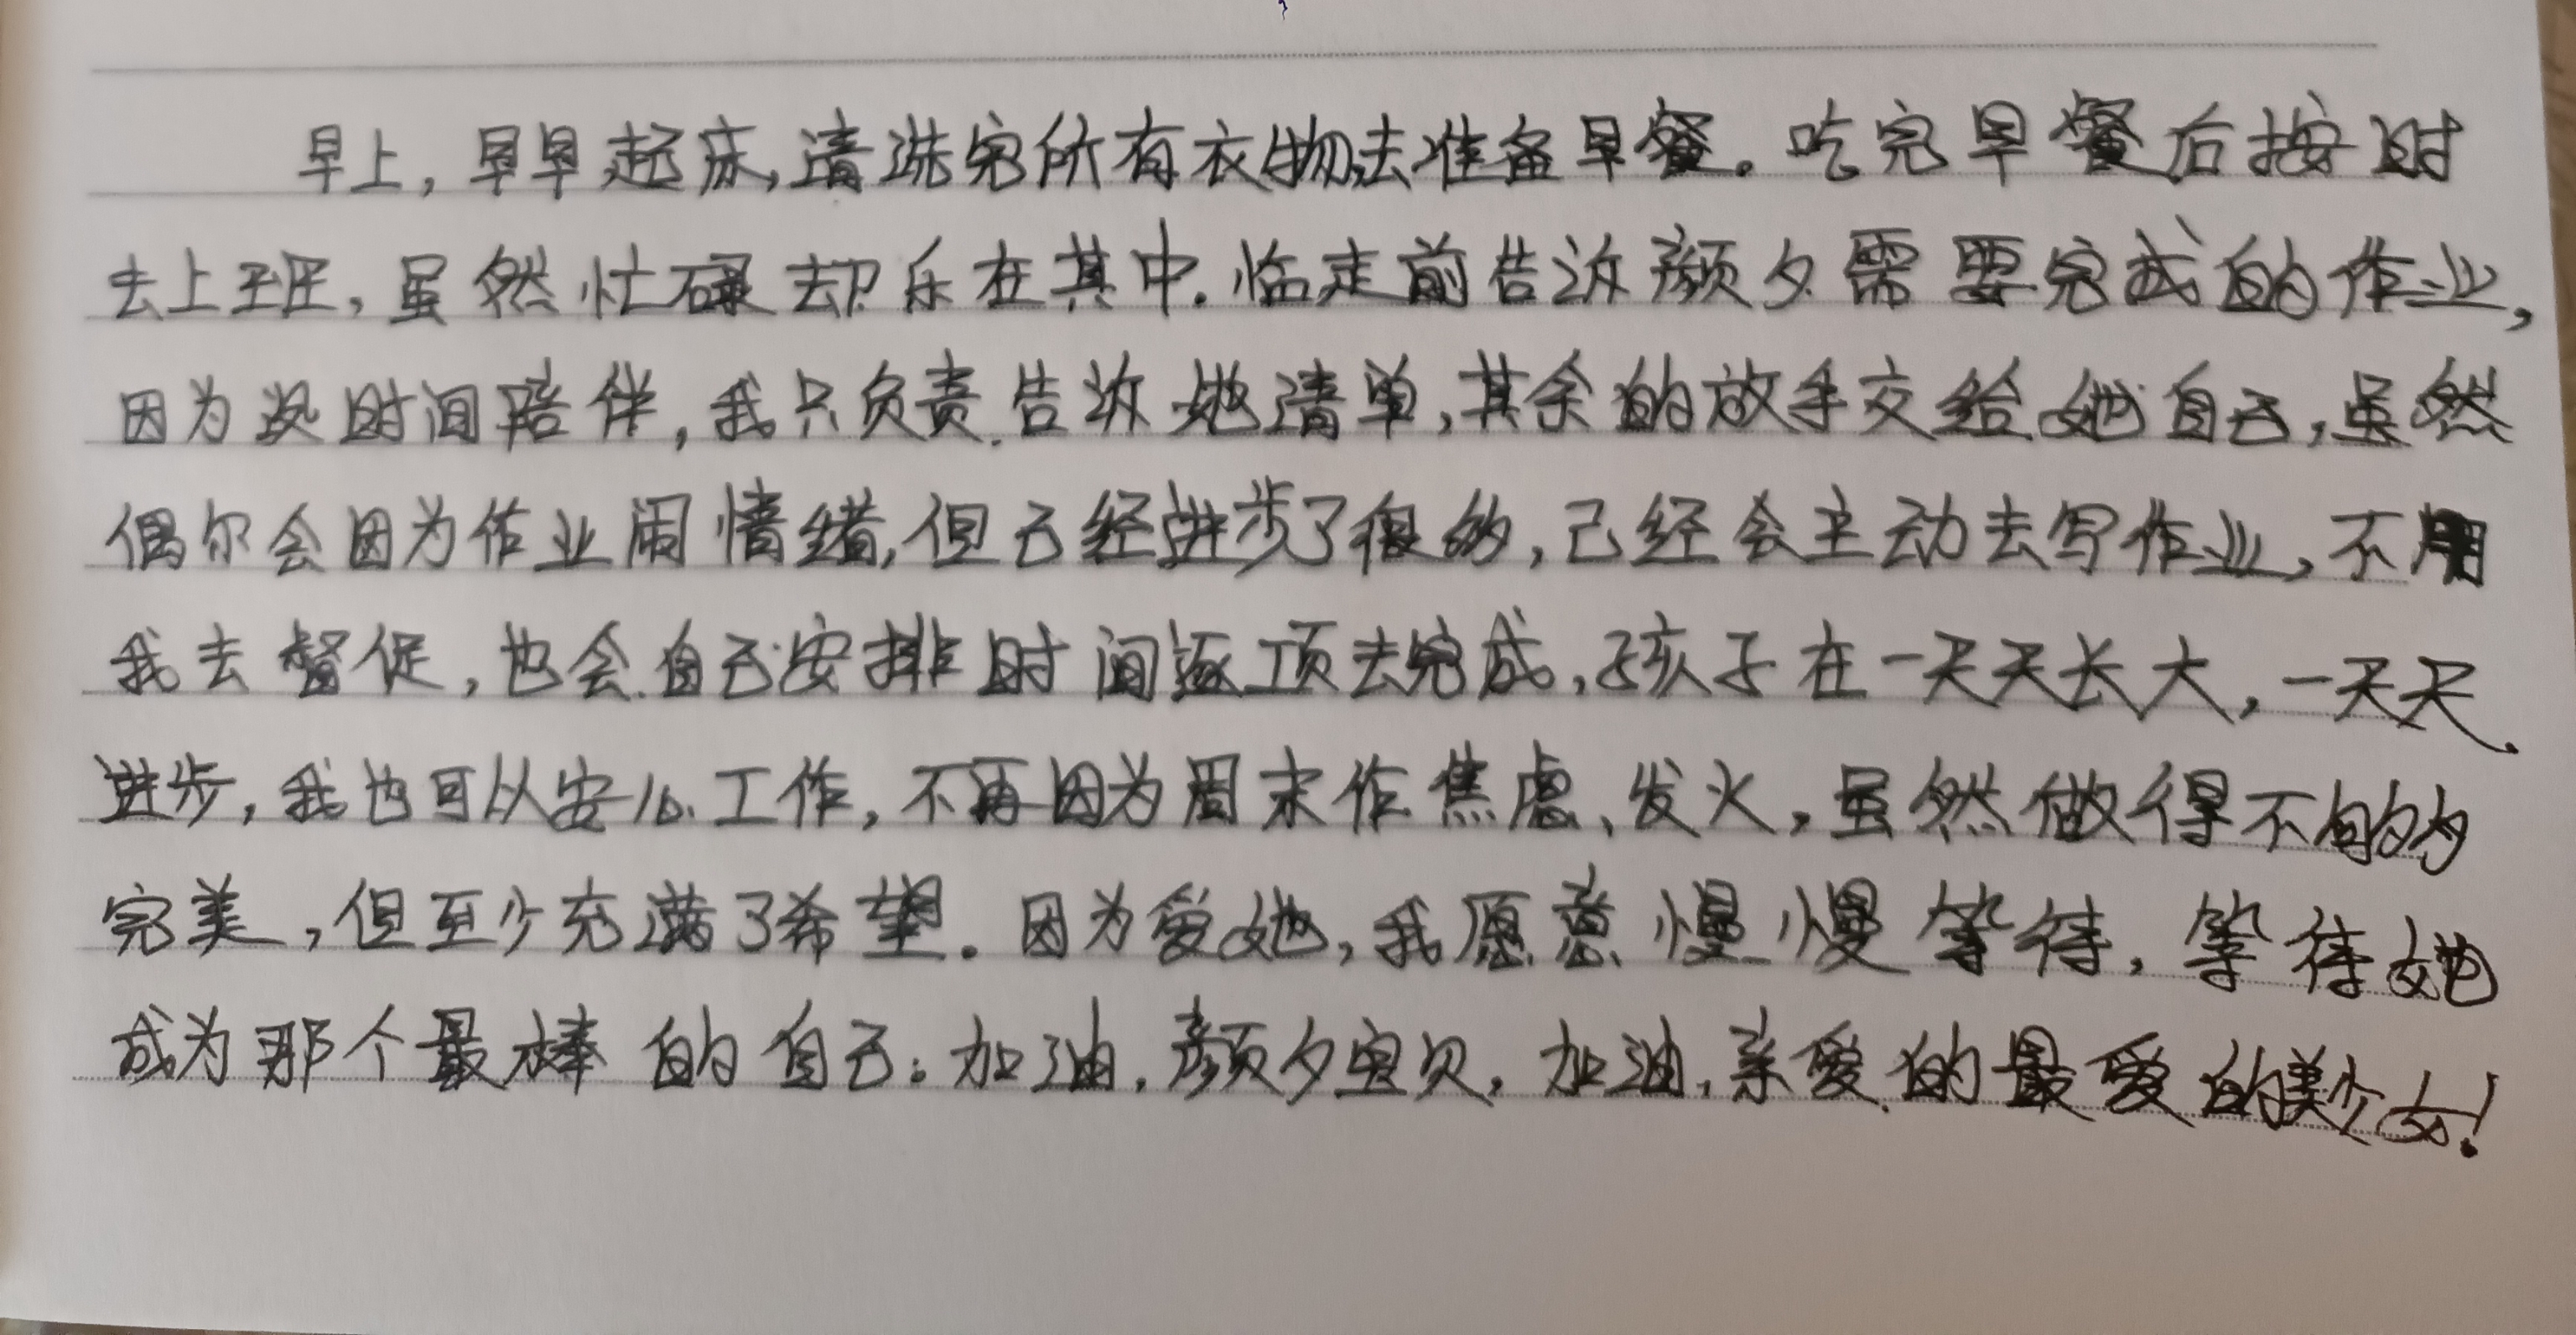 早上，早早起床，清洗完所有衣物去准备早餐。吃完早餐后按时
去上班，虽然忙碌却乐在其中。临走前告诉颜夕需要完成的作业，
因为没时间陪伴，我只负责告诉她清单，其余的放手交给她自己，虽然
偶尔会因为作业闹情绪，但已经进步了很多，已经会主动去写作业，不用
我去督促，也会自己安排时间逐项去完成，孩子在一天天长大，一天天
进步，我也可以安心工作，不再因为周末作焦虑、发火，虽然做得不
完美，但至少充满了希望。因为爱她，我愿意慢慢等待，等待她
成为那个最棒的自己。加油，颜夕宝贝，加油，亲爱的最爱的美少女！